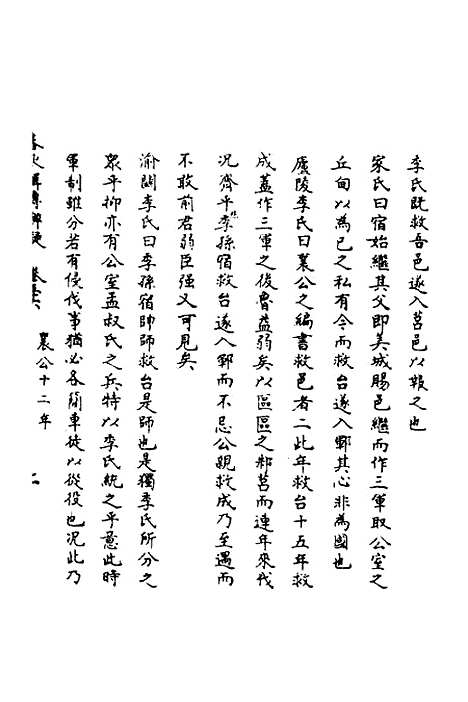 季氏既救吾邑遂入莒邑以報之也
家氏曰宿始繼其父即美城賜邑繼而作三軍取公室之
丘甸以為己之私有今而救台遂入鄆其心非為國也
廬陵李氏曰襄公之編書救邑者二此年救台十五年救
成蓋作三軍之後魯益弱矣以區區之邾莒而連年來伐
況齊乎季孫宿救台遂入鄆而不忌公親救成乃至遇而
不敢前君弱臣强又可見矣
渝關李氏曰季孫宿帥師救台是師也是獨季氏所分之
眾乎抑亦有公室孟叔氏之兵特以季氏統之乎意此時
軍制雖分若有侵伐事猶必各簡車徒以從役也况此乃
春秋輯傳辨疑 卷
襄公十二年
二